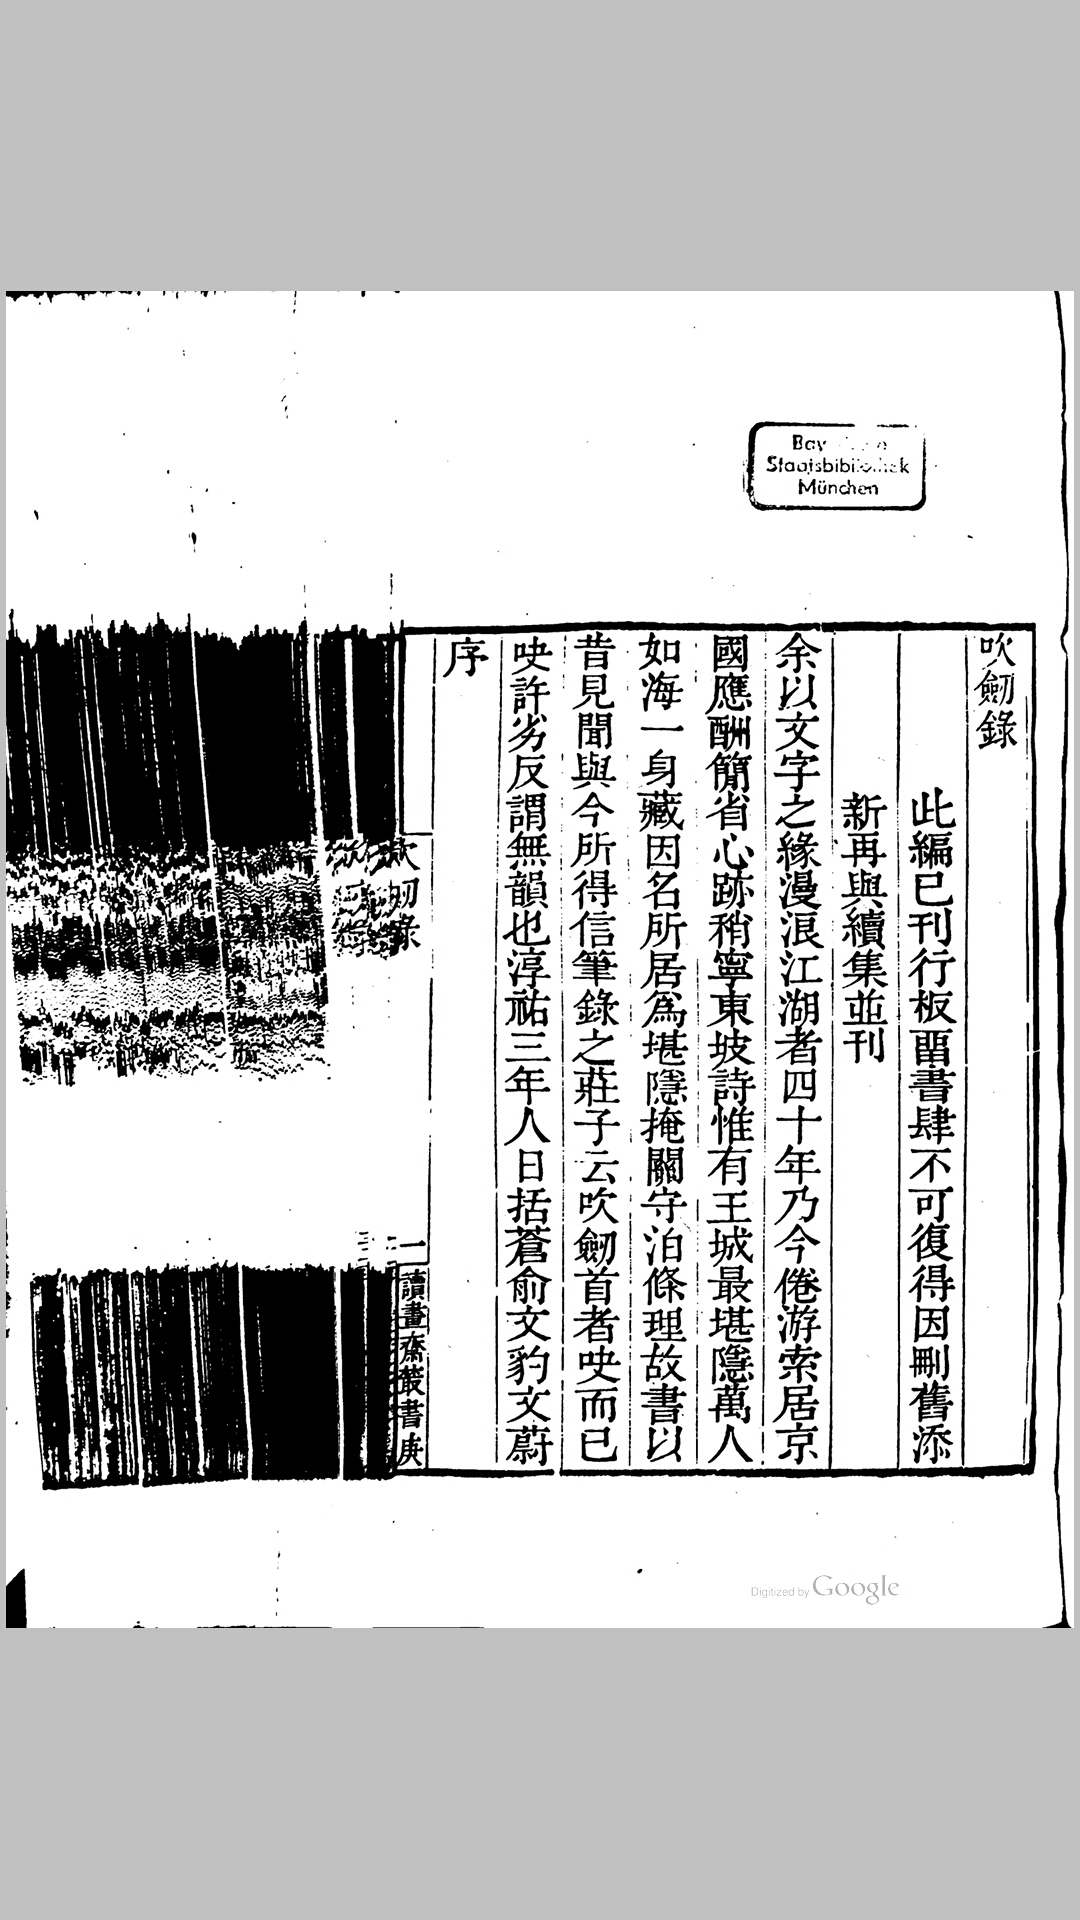 吹劒錄
此編已刊行板畱書肆不可復得因刪舊添
新再與續集並刊
余以文字之緣漫浪江湖者四十年乃今倦游索居京
國應酬簡省心跡稍寧東坡詩惟有王城最堪隱萬人
如海一身藏因名所居爲堪隱掩關守泊條理故書以
昔見聞與今所得信筆錄之莊子云吹劒首者吷而已
吷許劣反謂無韻也淳祐三年人日括蒼俞文豹文蔚
序
吹劒錄
一
讀畫齋叢書庚
Staatsbibliothek
München
Digitized by Google